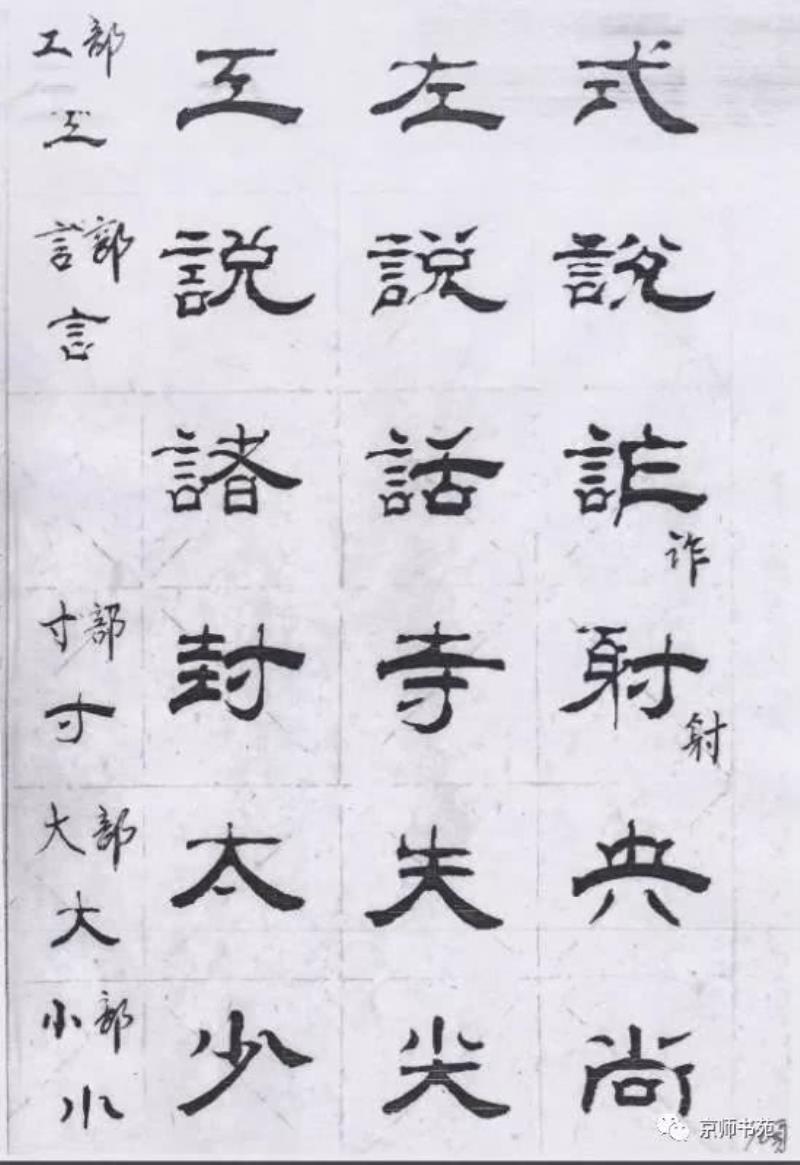 工部 工 工 左 式
言部 言 說 說 說
諸 話 詐
诈
寸部 寸 封 寺 射
射
大部 大 太 夫 央
小部 小 少 尖 尚
京师书苑